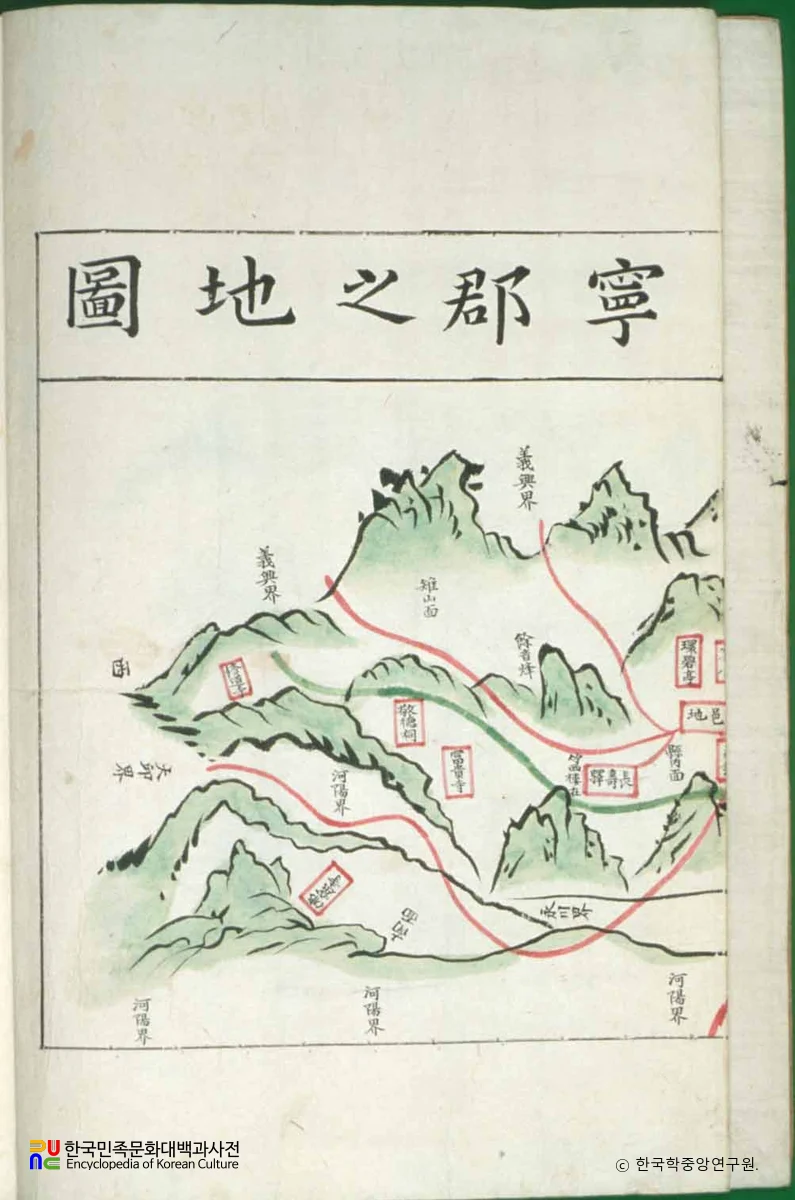 寧郡之地圖
義興界
義興界
雉山面
環碧亭
邑地
縣內面
長壽驛
敬德祠
富貴寺
西
河陽界
永川界
河陽界
河陽界
河陽界
한국민족문화대백과사전
Encyclopedia of Korean Culture
ⓒ 한국학중앙연구원.